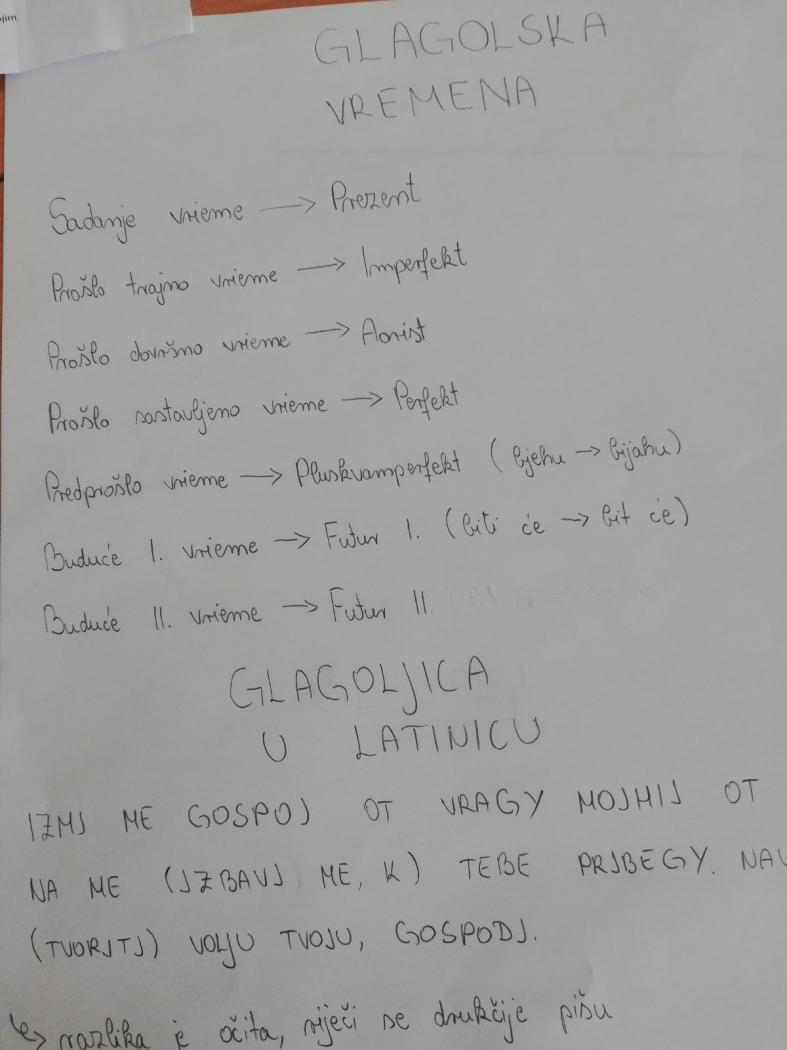 jim
GLAGOLSKA
VREMENA
Sadanje vrieme → Prezent
Prošlo trajno vrieme → Imperfekt
Prošlo dovršno vrieme → Aorist
Prošlo sastavljeno vrieme → Perfekt
Predprošlo vrieme → Pluskvamperfekt (bjehu → bijahu)
Buduće I. vrieme → Futur I. (biti će → bit će)
Buduće II. vrieme → Futur II
GLAGOLJICA
U LATINICU
IZMJ ME GOSPOJ OT VRAGY MOJMIJ OT
NA ME (JZBAVJ ME, K) TEBE PRJBEGY. NAU
(TVORJTJ) VOLJU TVOJU, GOSPODJ.
↳ razlika je očita, riječi se drukčije pišu